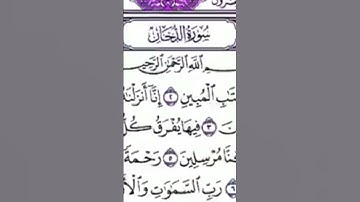 سُورَةُ الدُّخَانِ
ـمِ ٱللَّهِ ٱلرَّحْمَٰنِ ٱلرَّحِيمِ
ـتَٰبِ ٱلْمُبِينِ ٢ إِنَّآ أَنزَلْنَٰـ
٣ فِيهَا يُفْرَقُ كُلُّ
ـنَّا مُرْسِلِينَ ٥ رَحْمَةً
٦ رَبِّ ٱلسَّمَٰوَٰتِ وَٱلْأَ